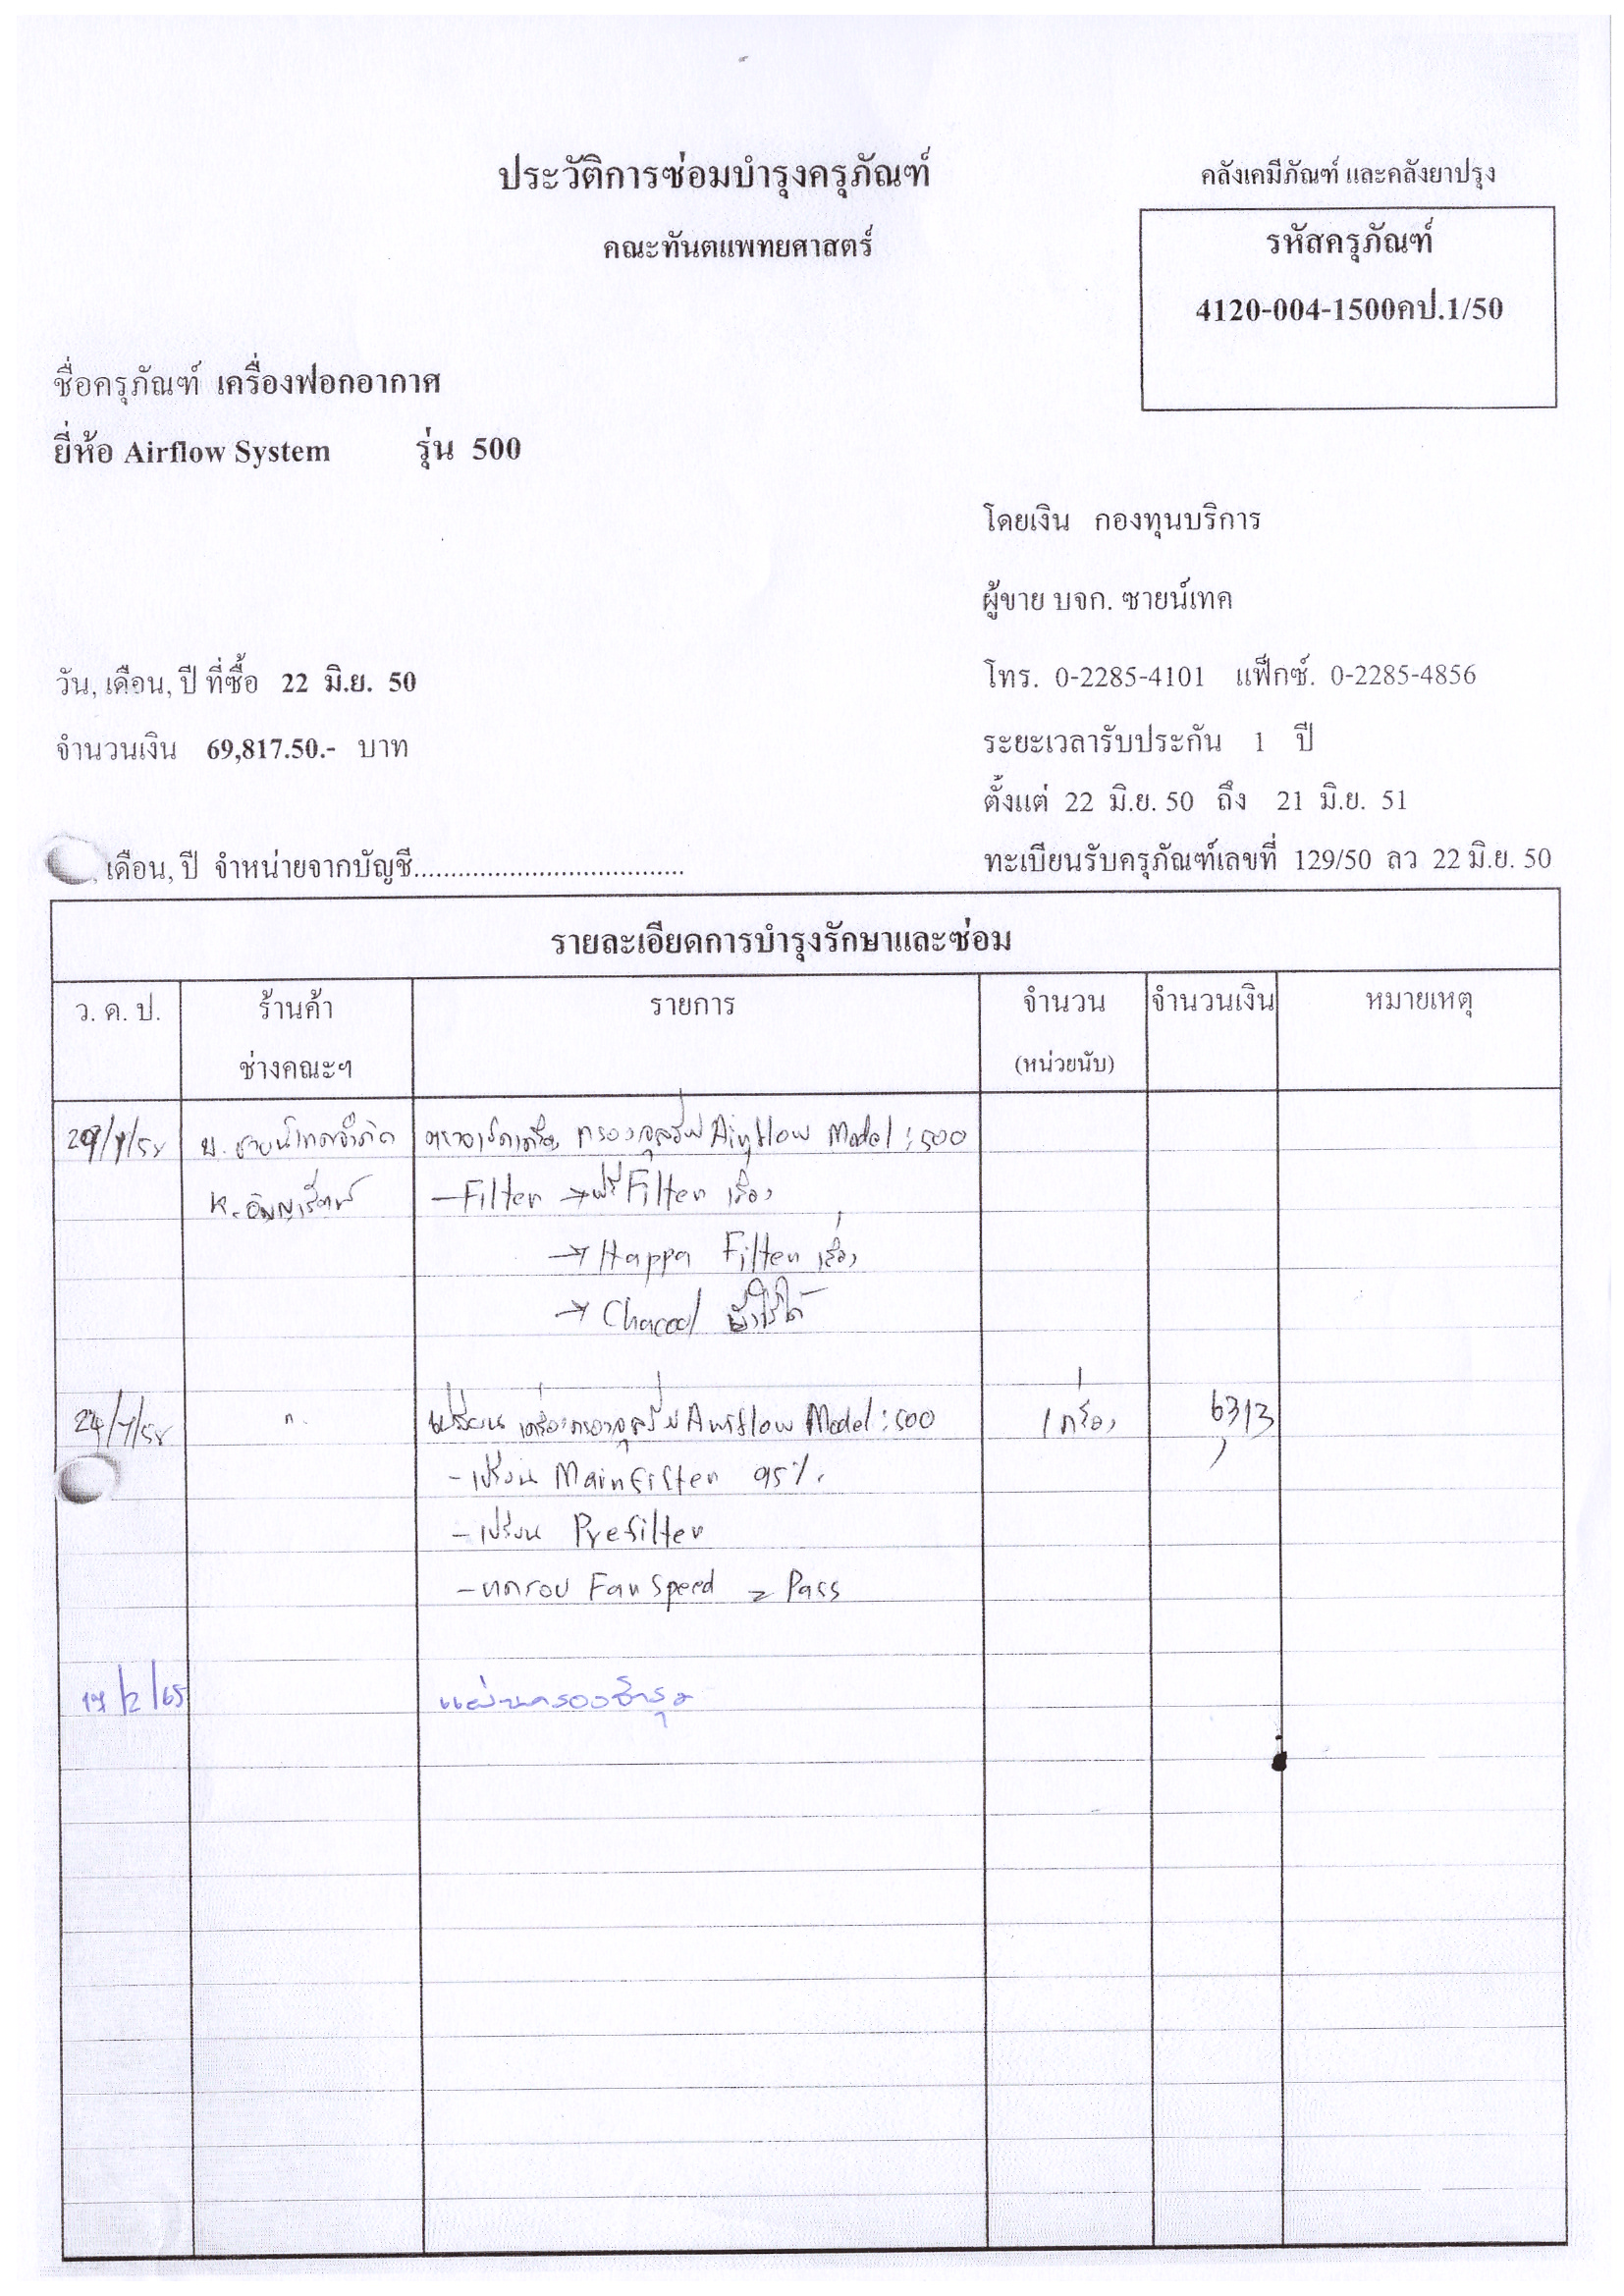 ประวัติการซ่อมบำรุงครุภัณฑ์
คลังเคมีภัณฑ์ และคลังยาปรุง
คณะทันตแพทยศาสตร์
รหัสครุภัณฑ์
4120-004-1500คป.1/50
ชื่อครุภัณฑ์ เครื่องฟอกอากาศ
ยี่ห้อ Airflow System รุ่น 500
โดยเงิน กองทุนบริการ
ผู้ขาย บจก. ซายน์เทค
วัน, เดือน, ปี ที่ซื้อ 22 มิ.ย. 50
โทร. 0-2285-4101 แฟ็กซ์. 0-2285-4856
จำนวนเงิน 69,817.50.- บาท
ระยะเวลารับประกัน 1 ปี
ตั้งแต่ 22 มิ.ย. 50 ถึง 21 มิ.ย. 51
, เดือน, ปี จำหน่ายจากบัญชี....................................
ทะเบียนรับครุภัณฑ์เลขที่ 129/50 ลว 22 มิ.ย. 50
รายละเอียดการบำรุงรักษาและซ่อม
ว. ด. ป. ร้านค้า รายการ จำนวน จำนวนเงิน หมายเหตุ
ช่างคณะฯ (หน่วยนับ)
บ. ซายน์เทคจำกัด ตรวจเช็คเครื่อง กรองจุลรีย์ Airflow Model : 500
- Filter → พรี Filter เสื่อม
→ Happa Filter เสื่อม
→ Chacoal ยังใช้ได้
เปลี่ยน เครื่องกรองจุลรีย์ Airflow Model : 500 1 เครื่อง 6313
- เปลี่ยน Mainfilter 95%
- เปลี่ยน Prefilter
- ทดรอบ Fan Speed = Pass
/2/65 แผ่นกรองชำรุด